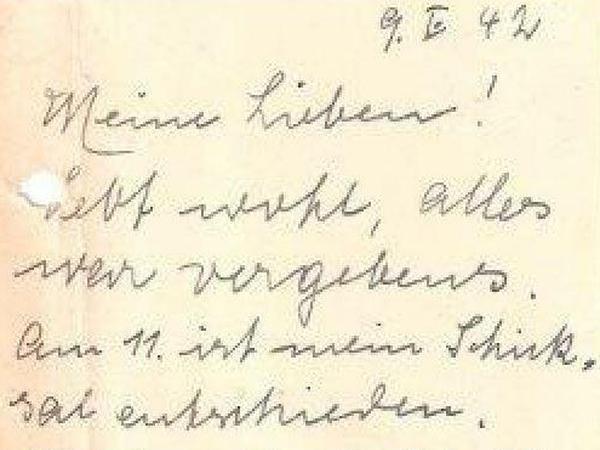 9. V 42
Meine Lieben!
Lebt wohl, alles
war vergebens.
Am 11. ist mein Schick-
sal entschieden.